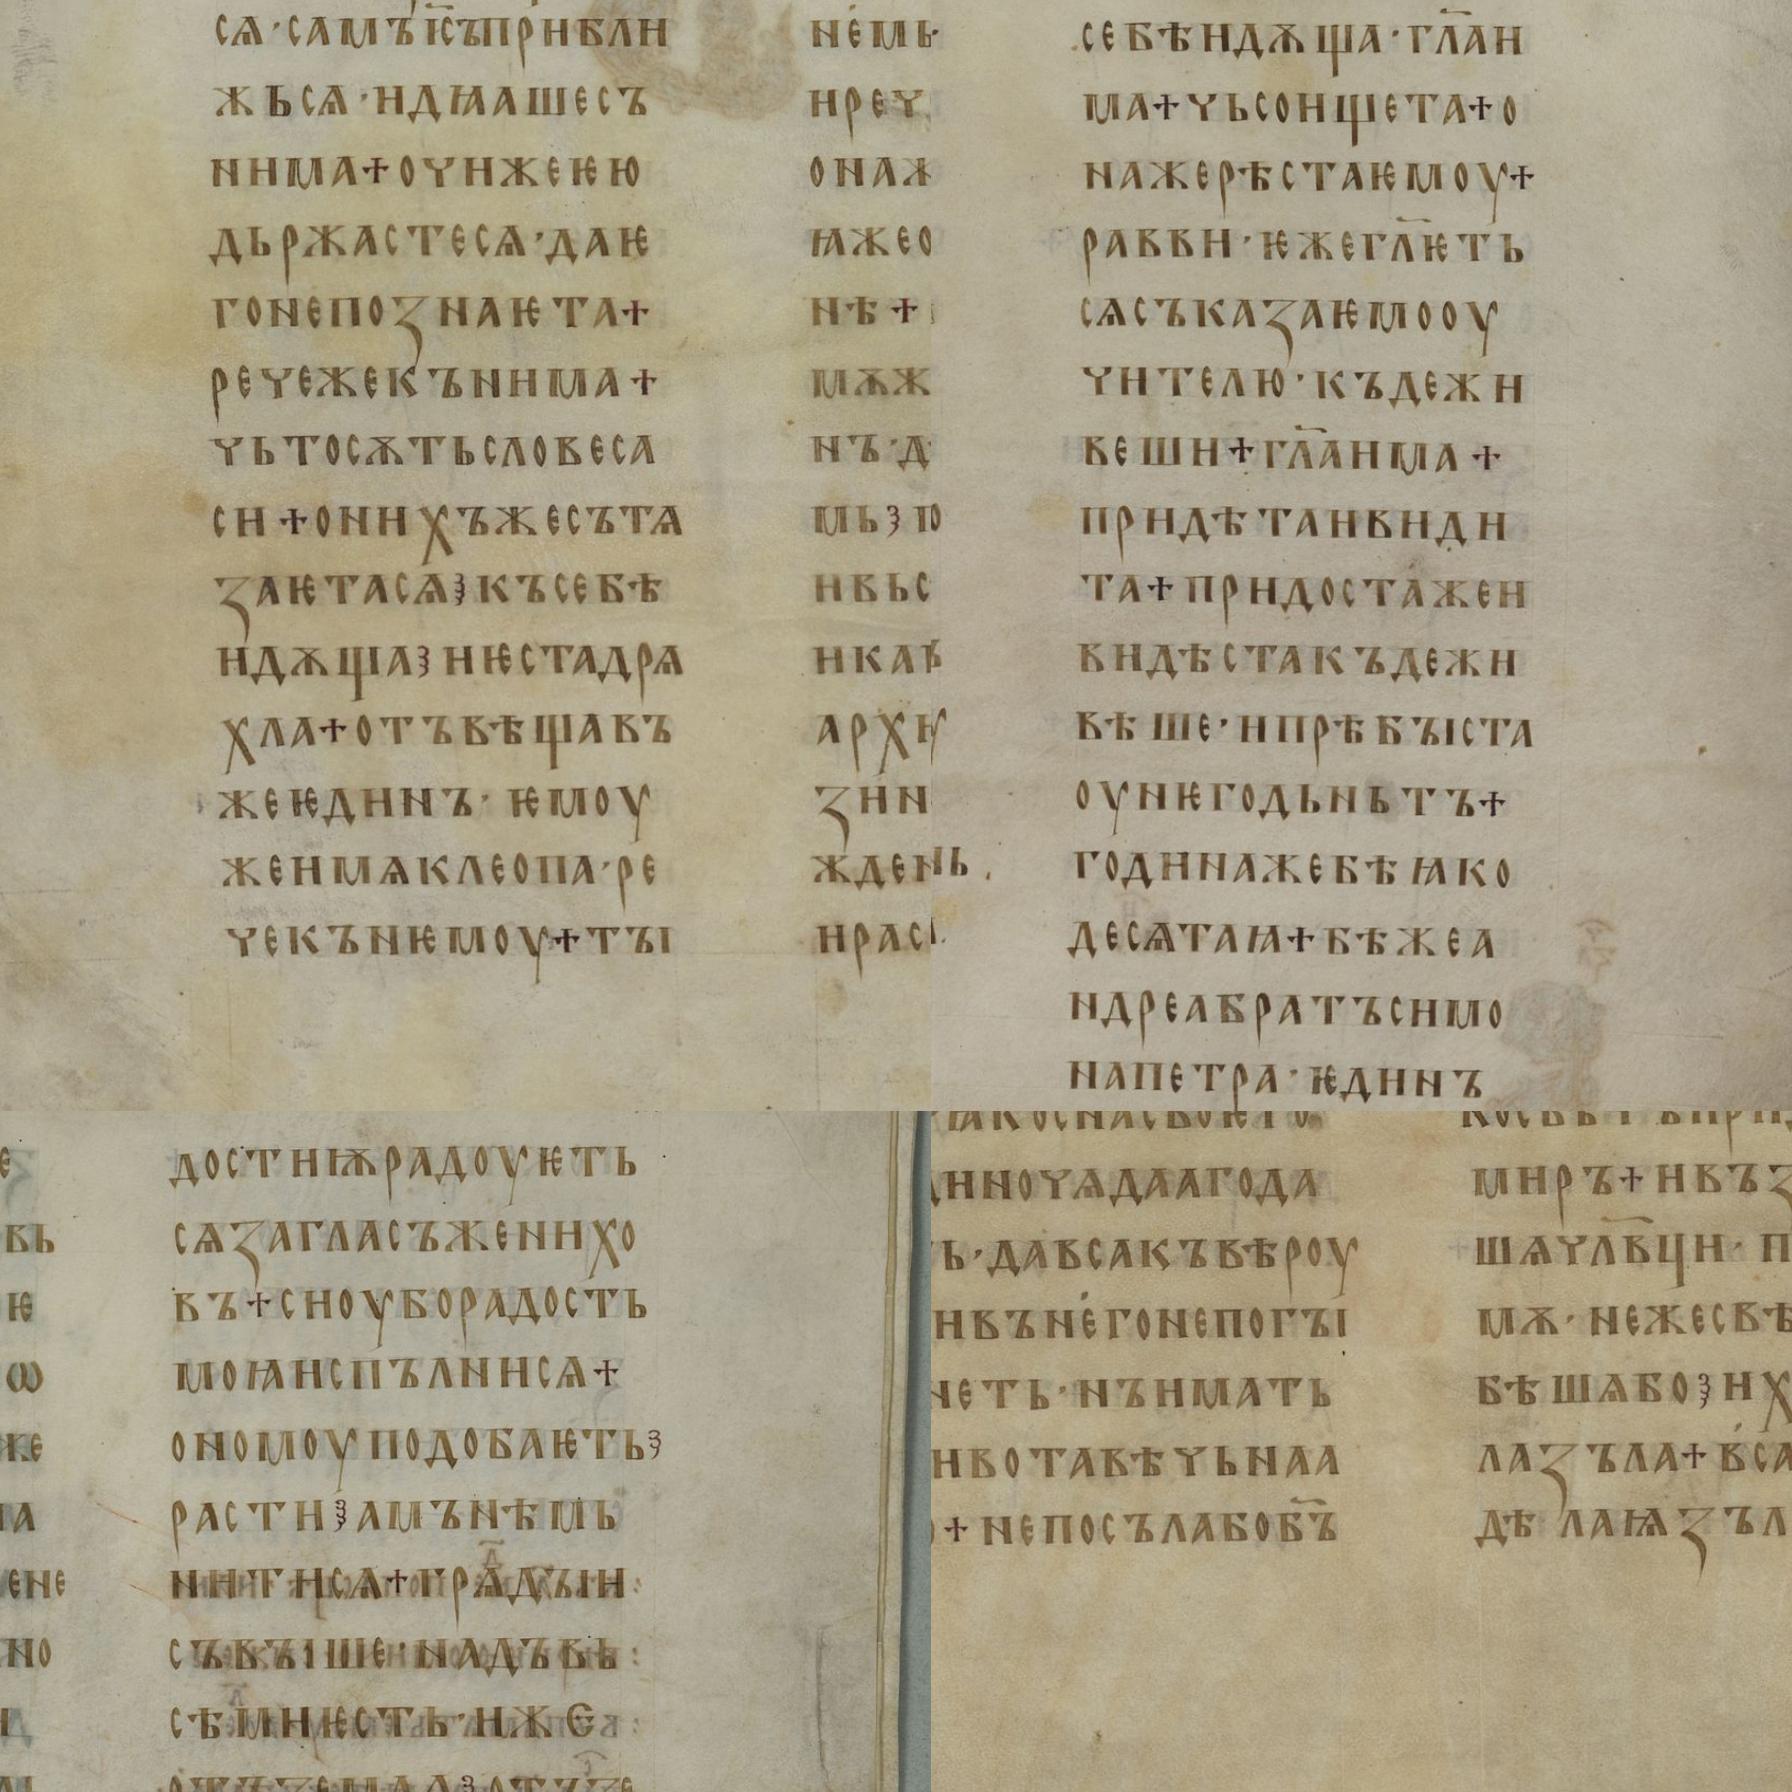 сѧ·самъі҃съприбли
жьсѧ·идꙗашесъ
нима+очижеѥю
дьржастесѧ·даѥ
гонепоꙁнаѥта+
речежекънима+
чьтосѫтьсловеса
си+онихъжесътѧ
ꙁаѥтасѧꙁксъебѣ
идѫщаꙁиѥстадрѧ
хла+отъвѣщавъ
жеѥдинъ·ѥмоу
жеимѧклеопа·ре
чекънѥмоу+тꙑ
немь·
ирек
онаж
ꙗжео
нѣ+
мѫж
нъ·д
мь
ивьс
икаѣ
архи
ꙁии
жден
ирас
себѣидѫща·гл҃аи
ма+чьсоищета+о
нажерѣстаѥмоу+
равви·ѥжегл҃ѥть
сѧсъкаꙁаѥмооу
чителю·къдежи
веши+гл҃аима+
придѣтаивиди
та+придостажеи
видѣстакъдежи
вѣше·ипрѣбꙑста
оунѥгодьньтъ+
годинажебѣꙗко
десѧтаꙗ+бѣжеа
ндреабратъсимо
напетра·ѥдинъ
достиѭрадоуѥть
сѧꙁагласъженихо
въ+сиоуборадость
моꙗисплънисѧ+
ономоуподобаѥтьꙁ
растиꙁамънѣмь
нитисѧ+грѧдꙑи:
съвꙑше·надъвь:
сѣмиѥсть·ижє
вь
ѥ
ѡ
же
на
ене
но
ꙗкоснасвоѥго
диночѧдааагода
ь·давсакъвѣроу
ивънегонепогꙑ
неть·нъимать
ивотавѣчьнаа
+непосълабоб҃ъ
миръ+ивъꙁ
шѧчл҃вци·п
мѫ·нежесвѣ
бѣшѧбоꙁих
лаꙁъла+вса
дѣлаꙗꙁъл